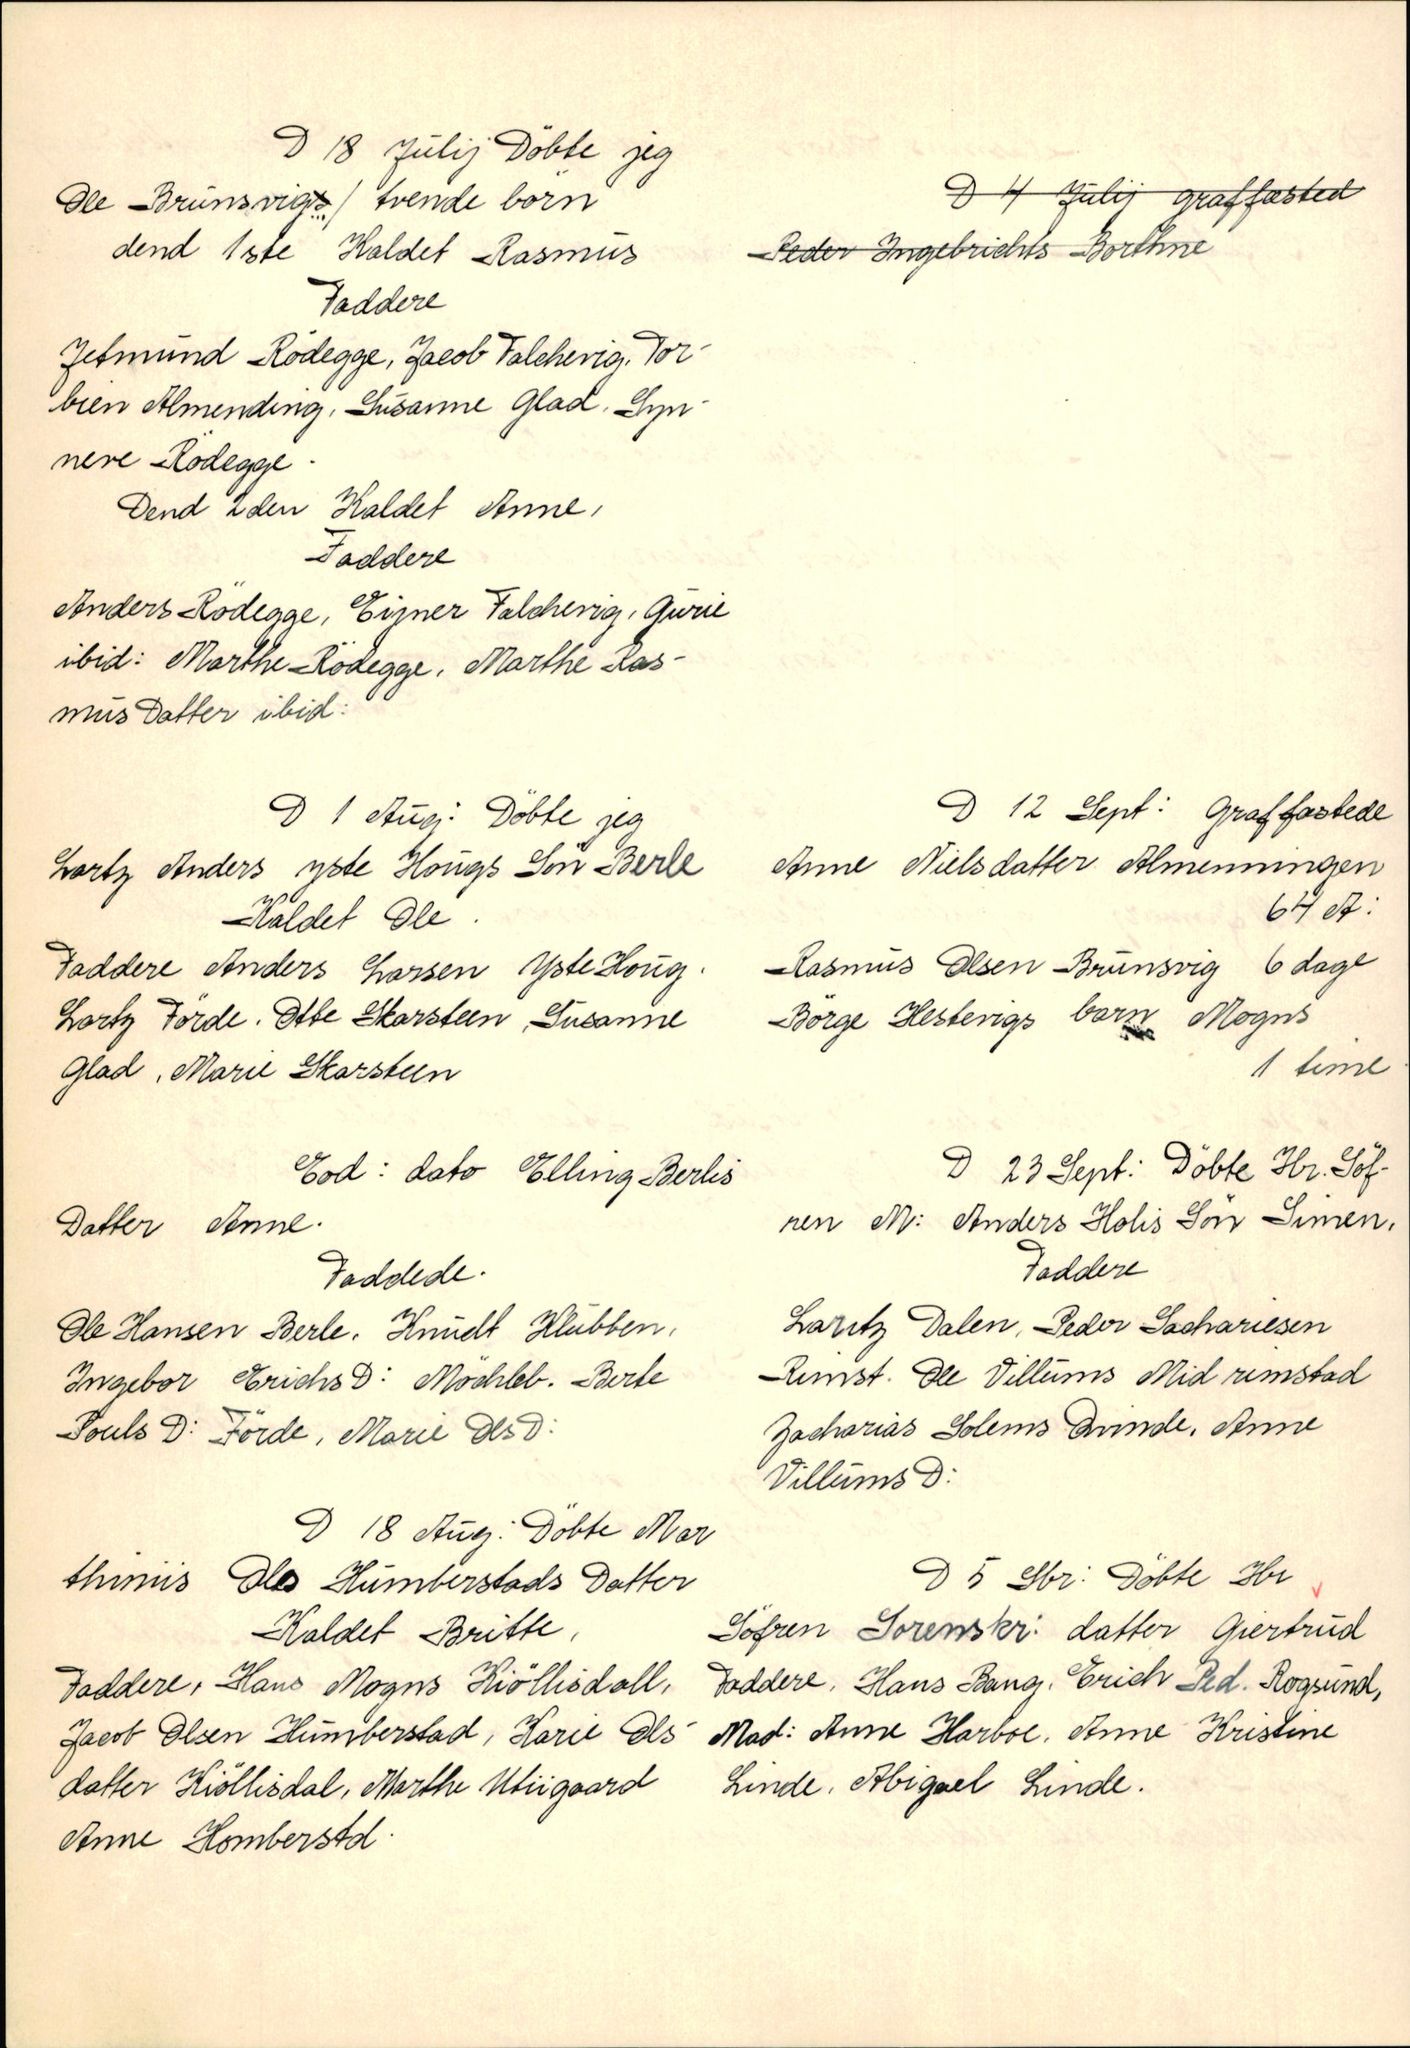 D 18 Julij Döbte jeg
Ole Brunsvigs / tvende börn
dend 1ste Kaldet Rasmus
Faddere
Jetmund Rödegge, Jacob Falchevig. Tor-
bien Almending, Susanne Glad. Syn-
neve Rödegge.
Dend 2den Kaldet Anne,
Faddere
Anders Rödegge, Eijner Falchevig, Gurie
ibid: Marthe Rödegge, Marthe Ras-
mus Datter ibid:
D 1 Aug: Döbte jeg
Lartz Anders yste Hougs Sön Berle
Kaldet Ole.
Faddere Anders Larsen Yste Houg.
Lartz Förde. Otte Skarsteen, Susanne
Glad, Marie Skarsteen
Eod: dato Elling Berlis
Datter Anne.
Faddede.
Ole Hansen Berle. Knudt Klubben,
Ingebor Erichs D: Möchleb. Berte
Pouls D: Förde, Marie Ols D:
D 18 Aug: Döbte Mar
thinus Ols Humberstads Datter
Kaldet Britte,
Faddere, Hans Mogns Kiöllisdall,
Jacob Olsen Humberstad, Karie Ols-
datter Kiöllisdal, Marthe Utiigaard
Anne Homberstd.
D 4 Julij graffæsted
Peder Ingebrichts Borthne
D 12 Sept: Graffæstede
Anne Nielsdatter Almenningen
64 A:
Rasmus Olsen Brunsvig 6 dage
Börge Hestevigs barn Mogns
1 time
D 23 Sept: Döbte Hr. Söf-
ren M: Anders Holis Sön Simen,
Faddere
Laritz Dalen, Peder Sachariesen
Rimst. Ole Villums Mid rimstad
Zacharias Solems Qvinde, Anne
Villums D:
D 5 Sbr: Döbte Hr
Söfren Sorenskr: datter Giertrud
Faddere, Hans Bang, Erich Ped. Rogsund,
Mad: Anne Harboe, Anne Kristine
Linde, Abigael Linde.